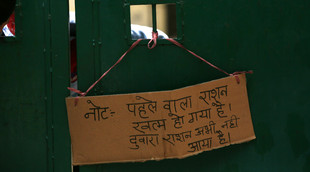 नोट:- पहले वाला राशन
खत्म हो गया है।
दुबारा राशन अभी नही
आया है।